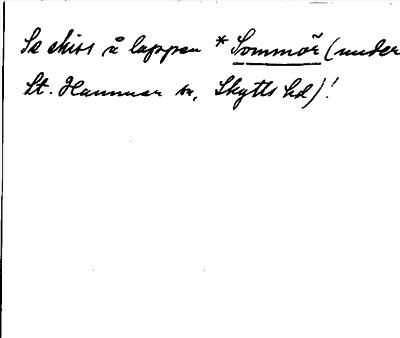 Se skiss å lappen * Sommör (under
St. Hammar sn, Skytts hd)!